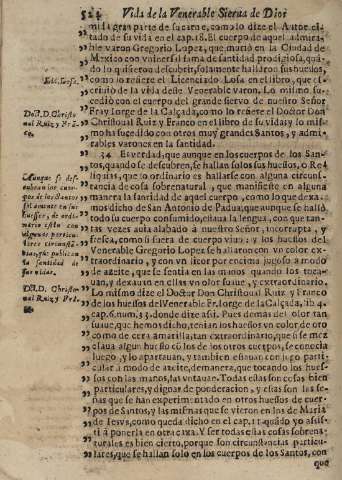 524 Vida de la Venerable Sierua de Dios
mida gran parte de su carne, como lo dize el Autor ci-
tado de su vida en el cap. 18. El cuerpo de aquel admira-
ble varon Gregorio Lopez, que murió en la Ciudad de
Mexico con vniuersal fama de santidad prodigiosa, quã-
do lo quisieron descubrir, solamente hallaron sus huessos,
como lo refiere el Licenciado Losa en el libro, que es-
criuió de la vida deste Venerable varon. Lo mismo su-
cedió con el cuerpo del grande sieruo de nuestro Señor
Fray Iorge de la Calçada, como lo refiere el Doctor Don
Christoual Ruiz y Franco en el libro de su vida; y lo mis-
mo ha sucedido con otros muy grandes Santos, y admi-
rables varones en la santidad.
Lic. Losa.
Doct. D. Christo
ual Ruiz y Frã
co.
34 Es verdad, que aunque en los cuerpos de los San-
tos, quando se descubren, se hallan solos sus huessos, ò Re-
liquias, que lo ordinario es hallarse con alguna circuns-
tancia de cosa sobrenatural, que manifieste en alguna
manera la santidad de aquel cuerpo, como lo que dexa-
mos dicho de San Antonio de Padua, que aunque se halló
todo su cuerpo consumido, estaua la lengua, con que tan-
tas vezes auia alabado à nuestro Señor, incorrupta, y
fresca, como si fuera de cuerpo viuo: y los huessos del
Venerable Gregorio Lopez se hallaron con vn color ex-
traordinario, y con vn licor por encima jugoso à modo
de azeite, que se sentia en las manos quando los toca-
uan, y dexauto en ellas vn olor suaue, y extraordinario.
Lo mismo dize el Doctor Don Christoual Ruiz y Franco
de los huessos del Venerable Fr. Iorge de la Calçada, lib. 4.
cap. 6. num. 33. donde dize assi. Pues demàs del olor tan
suaue, que hemos dicho, tenian los huessos vn color de oro
como de cera amarilla, tan extraordinario, que si se mez
claua algun huesso cõ los de los otros cuerpos, se conocia
luego, y lo apartauan, y tambien estauan con jugo parti-
cular à modo de azeite, de manera, que tocando los hues-
sos con las manos, las vntauan. Todas estas son cosas bien
particulares, y dignas de ponderacion, y essas son las pro-
pias que se han experimentado en otros huessos de cuer-
pos de Santos, y las mismas que se vieron en los de Maria
de Iesvs, como queda dicho en el cap. 11. quãdo yo assis-
tì à ponerla en otra caxa. Y ser todas estas cosas sobrena-
turales es bien cierto, porque son circunstancias particu-
lares, que se hallan solo en los cuerpos de los Santos, con
que
Aunque se des-
cubran los cuer-
pos de los Santos
solamente en sus
huessos, de ordi-
nario estàn con
algunas parti-
culares circunstã-
cias, que publican
la santidad de
sus vidas.
Doct. D. Christo
ual Ruiz y Frã-
co.